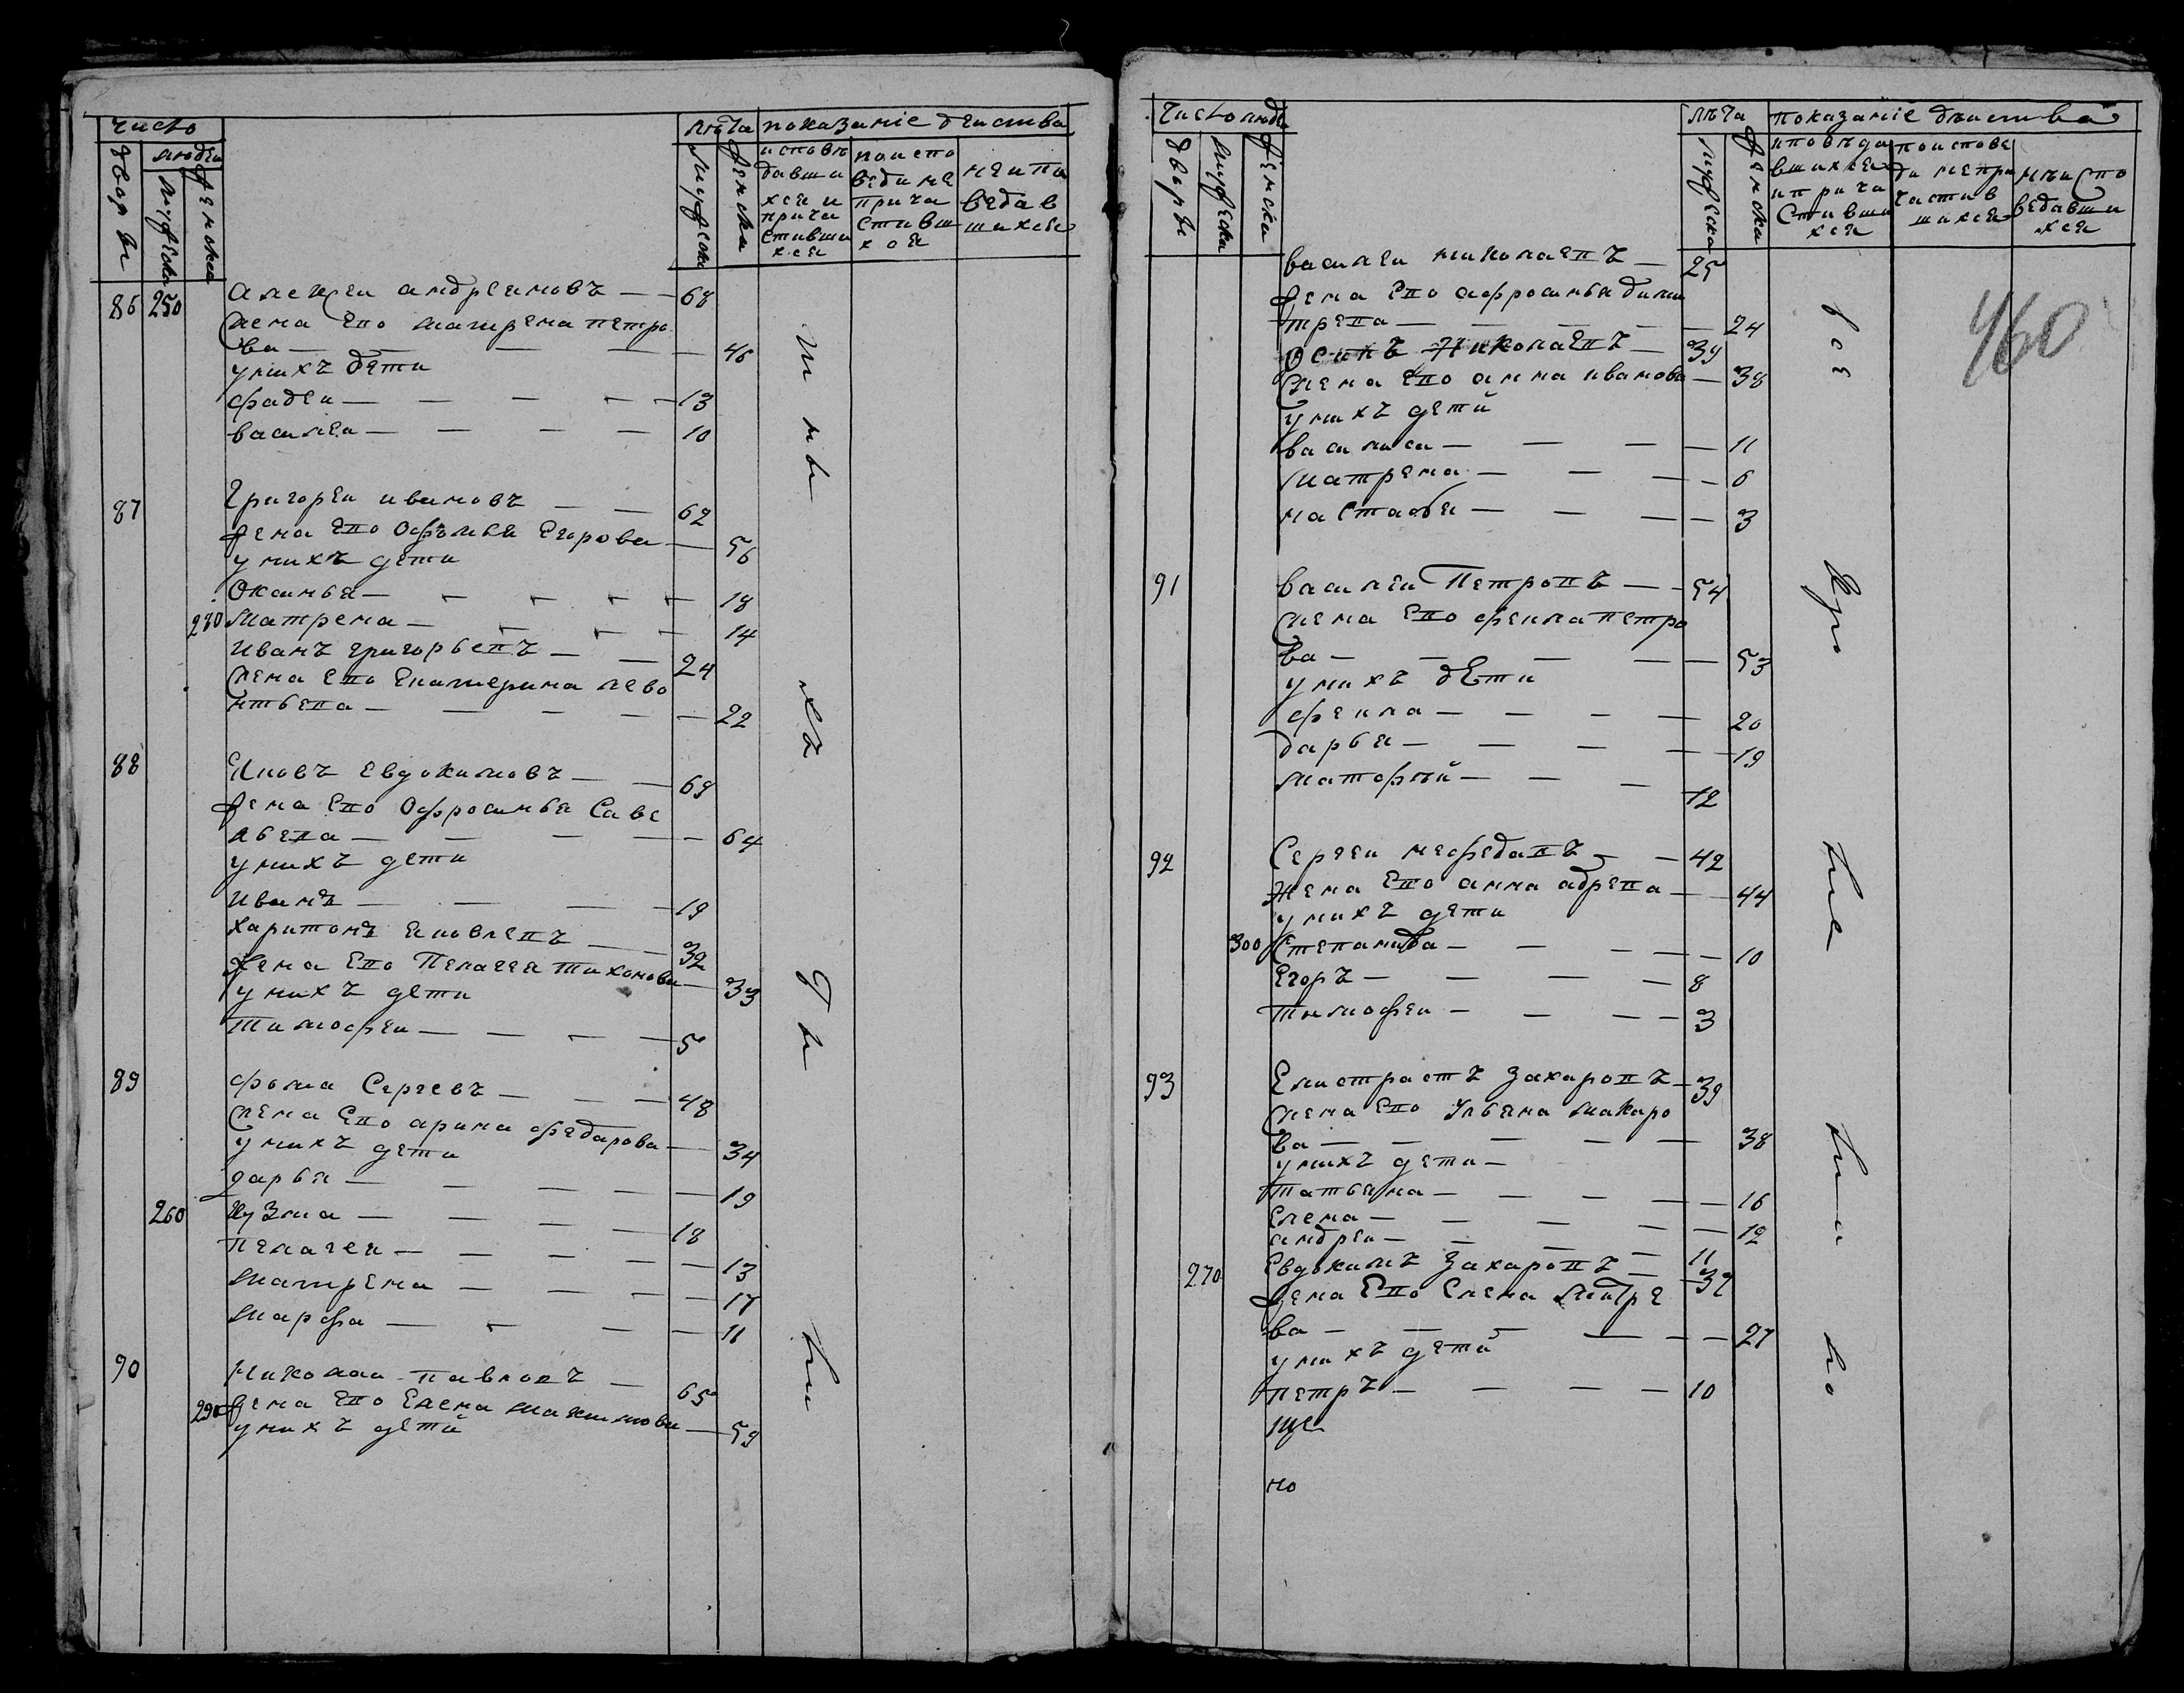 число
людеи
дворъ
мужеска
женска
лѣта
показаніе дѣиства
мужеска
женска
исповѣ
давши
хся и
прича
стивши
хся
поиспо
веди не
прича
стивш
хся
веда в
шихся
86 250 алексеи андреяновъ — 68
жена Его матрена петро
ва — 46
у нихъ дети
фадеи — 13
василеи — 10
87 Григореи ивановъ — 62
жена Его Офимья Егорова — 56
у нихъ дети
Оксинья — 18
280 Матрена — 14
иванъ григорьевъ — 24
жена Его Екатерина лево
нтьева — 22
88 Яковъ Евдокимовъ — 69
жена Его Офросинья Саве
льева — 64
у нихъ дети
иванъ — 19
харитонъ яковлевъ — 32
жена Его Пелагея тихонова — 33
у нихъ дети
тимофеи — 5
89 фома Сергеевъ — 48
жена Его арина федарова — 34
у нихъ дети
дарья — 19
260 кузма — 18
пелагея — 13
матрена — 17
марфа — 11
90 николаи павловъ — 65
290 жена Его Елена макимова — 59
у нихъ дети
число люде
дворъ
мужеска
женска
лѣта
показаніе дѣиства
мужеска
женска
вшихся
и прича
стивши
хся
поиспове
ди непри
частив
шихся
неиспо
ведавши
хся
460
василеи николаевъ — 25
жена Его афросинья дими
трева — 24
Осипъ Николаевъ — 39
жена Его анна иванова — 38
у нихъ дети
василиса — 11
матрена — 6
настасья — 3
91 василеи Петровъ — 54
жена Его фекла петро
ва — 53
у нихъ дети
фекла — 20
дарья — 19
матфѣй — 12
92 Сергеи нефедавъ — 42
жена Его анна адрева — 44
у нихъ дети
300 Степанида — 10
Егоръ — 8
Тимофеи — 3
93 Елистратъ Захаровъ — 39
жена Его Ульяна макаро
ва — 38
у нихъ дети —
татьяна — 16
Елена — 12
андреи — 11
270 Евдокимъ Захаровъ — 37
жена Его Елена митре
ва — 27
у нихъ дети
петръ — 10